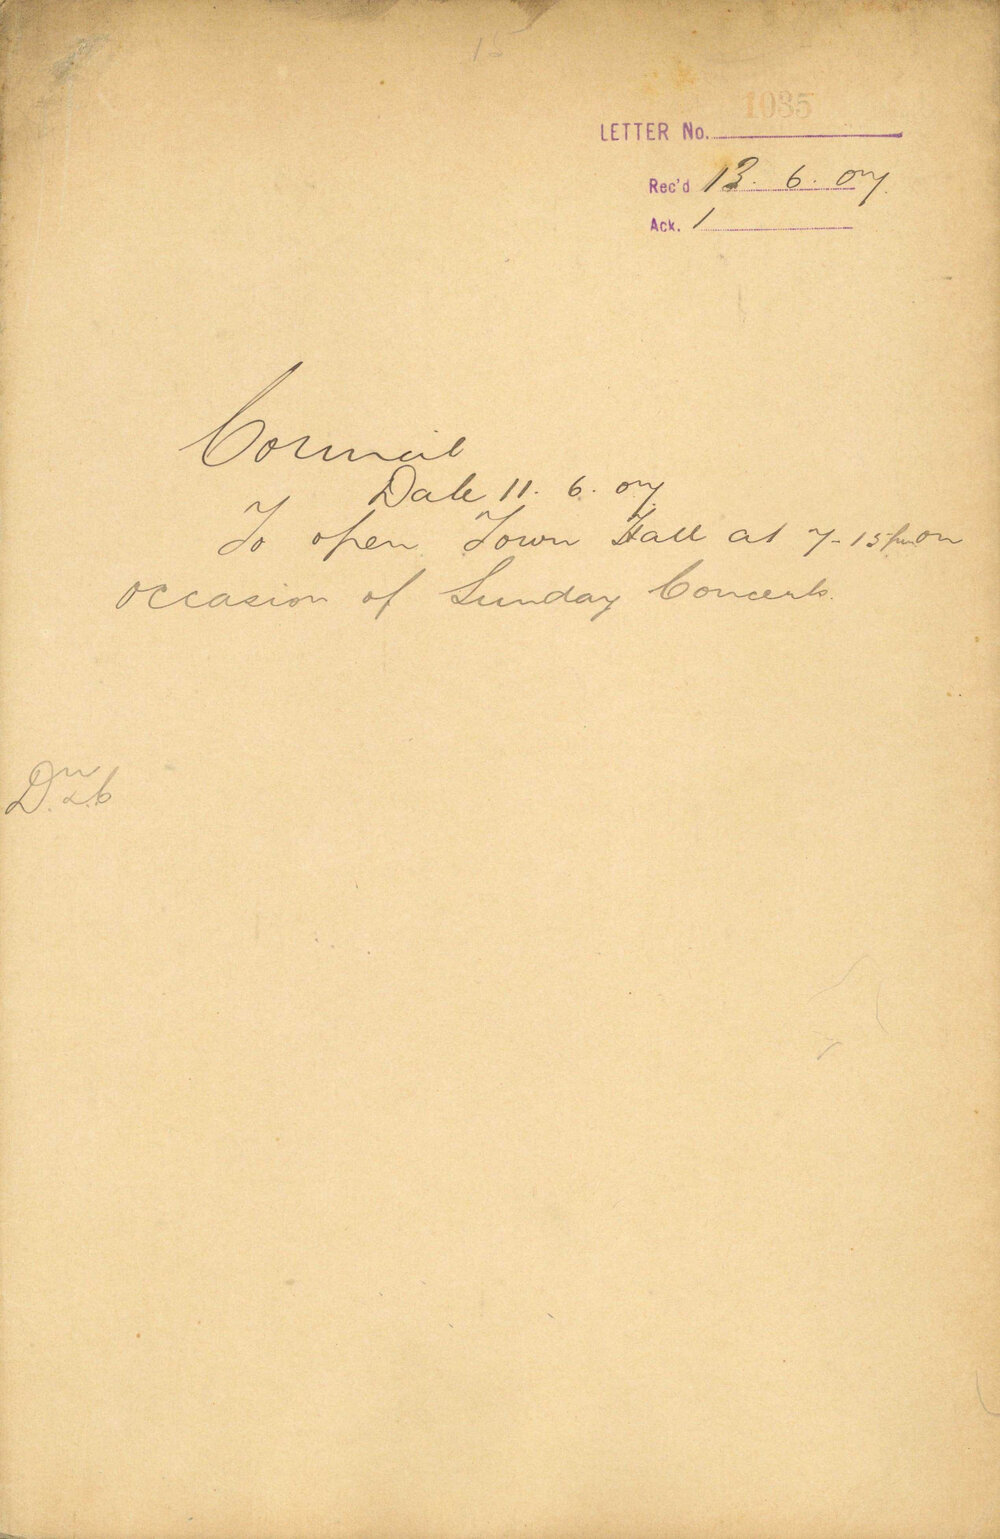 15
1085
LETTER No.
Rec'd 13. 6. 07.
Ack. /
Council
Date 11. 6. 07.
To open Town Hall at 7-15 pm on
occasion of Sunday Concerts.